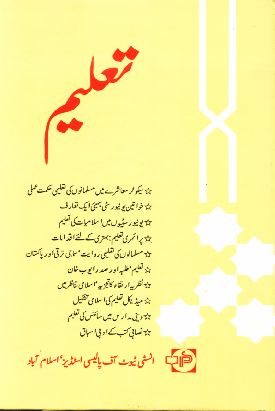 تعلیم
☆ سیکولر معاشرے میں مسلمانوں کی تعلیمی حکمت عملی
☆ خواتین یونیورسٹی بمبئی ایک تعارف
☆ یونیورسٹیوں میں اسلامیات کی تعلیم
☆ پرائمری تعلیم: بہتری کے لئے اقدامات
☆ مسلمانوں کی تعلیمی روایت، سماجی ترقی اور پاکستان
☆ تعلیم، طلبہ اور صدر ایوب خان
☆ نظریہ ارتقاء کا تجزیہ، اسلامی تناظر میں
☆ میڈیکل تعلیم کی اسلامی تشکیل
☆ دینی مدارس میں سائنس کی تعلیم
☆ نصابی کتب کے ادبی اسباق
انسٹی ٹیوٹ آف پالیسی اسٹڈیز، اسلام آباد